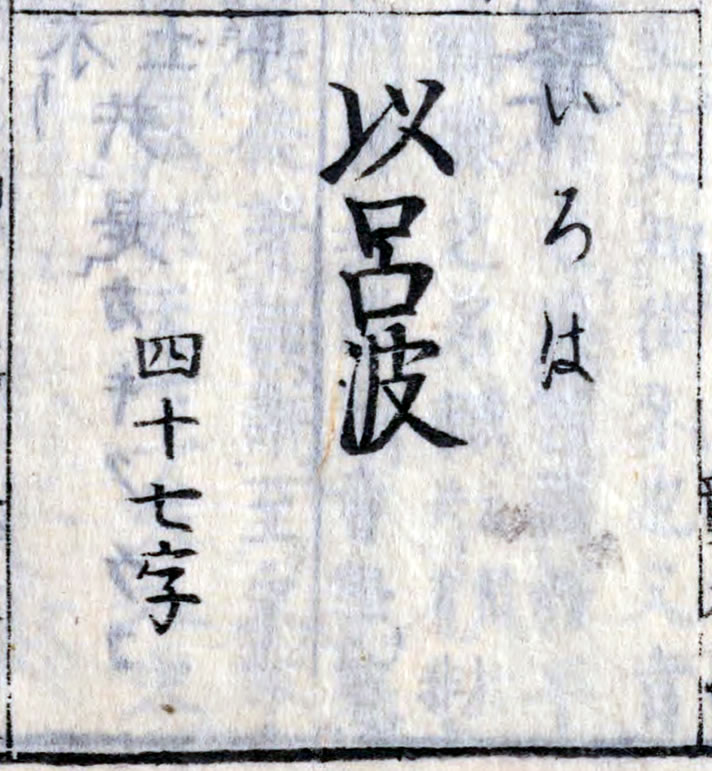 いろは
以呂波
四十七字